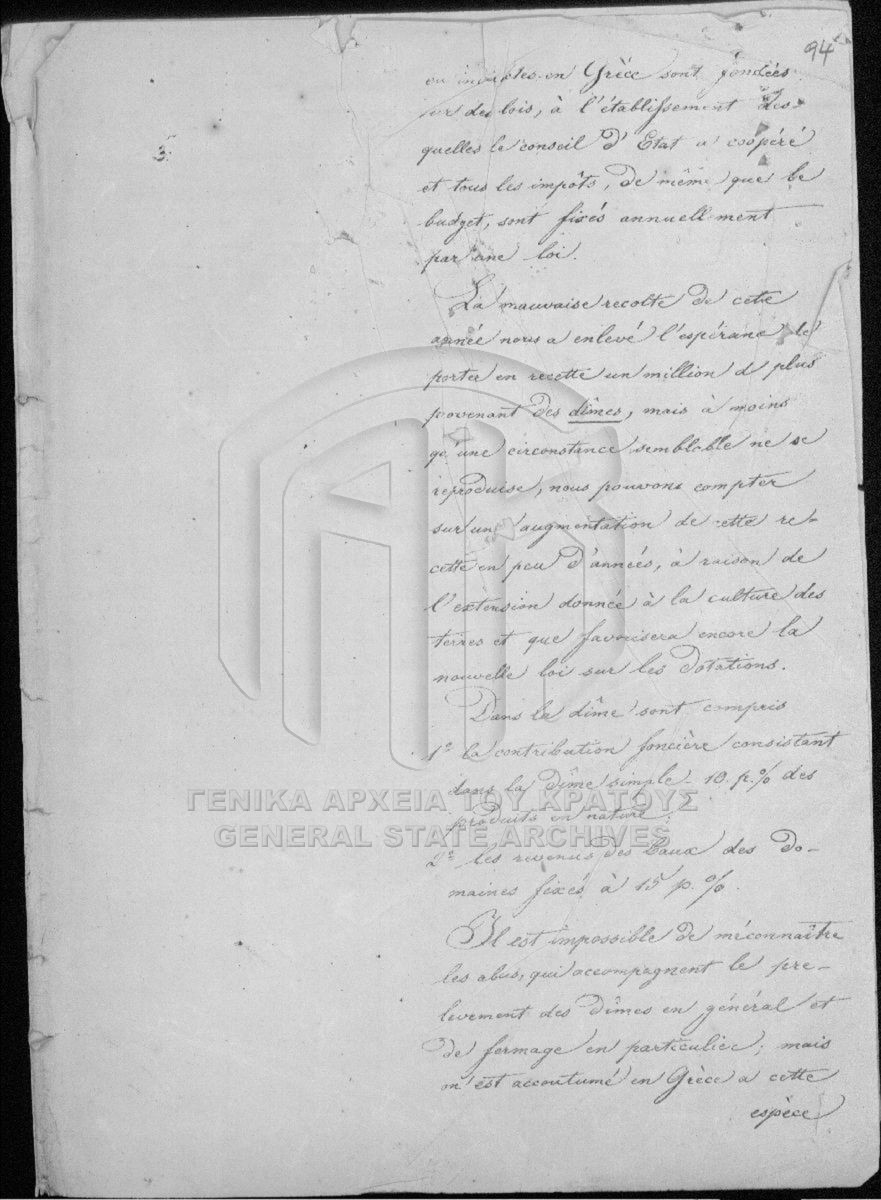 94
ou indirectes en Grèce sont fondées
sur des lois, à l'établissement des-
quelles le conseil d'Etat a coopéré
et tous les impôts, de même que le
budget, sont fixés annuellement
par une loi.
La mauvaise recolte de cette
année nous a enlevé l'espérance de
porter en recette un million de plus
provenant des dîmes, mais à moins
qu'une circonstance semblable ne se
reproduise, nous pouvons compter
sur un augmentation de cette re-
cette en peu d'années, à raison de
l'extension donnée à la culture des
terres et que favorisera encore la
nouvelle loi sur les Dotations.
Dans la dîme sont compris
1º la contribution foncière consistant
dans la dîme simple 10 p.% des
produits en nature;
2º les revenus des baux des Do-
maines fixés à 15 p.%.
Il est impossible de méconnaître
les abus, qui accompagnent le pre-
levement des dîmes en général et
de fermage en particulier; mais
on est accoutumé en Grèce a cette
espèce
ΓΕΝΙΚΑ ΑΡΧΕΙΑ ΤΟΥ ΚΡΑΤΟΥΣ
GENERAL STATE ARCHIVES